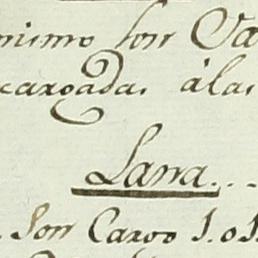 nismo son Ca
cargadas álas
Lana...
Son Cargo 1.01